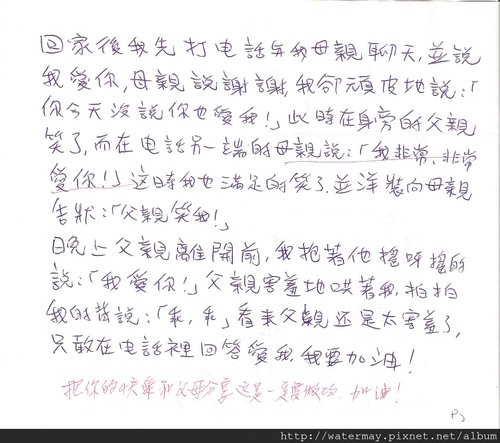 回家後我先打电話与我母親聊天,並說
我愛你,母親說謝謝,我卻頑皮地說:「
你今天沒說你也愛我!」此時在身旁的父親
笑了,而在电話另一端的母親說:「我非常、非常
愛你!」這時我也滿足的笑了,並洋裝向母親
告狀:「父親笑我!」
晚上父親離開前,我抱著他搖呀搖的
說:「我愛你!」父親害羞地哄著我,拍拍
我的背說:「乖,乖」看來父親还是太害羞了,
只敢在电話裡回答愛我,我要加油!
把你的快樂和父母分享這是一定要做的,加油!
http://watermay.pixnet.net/album